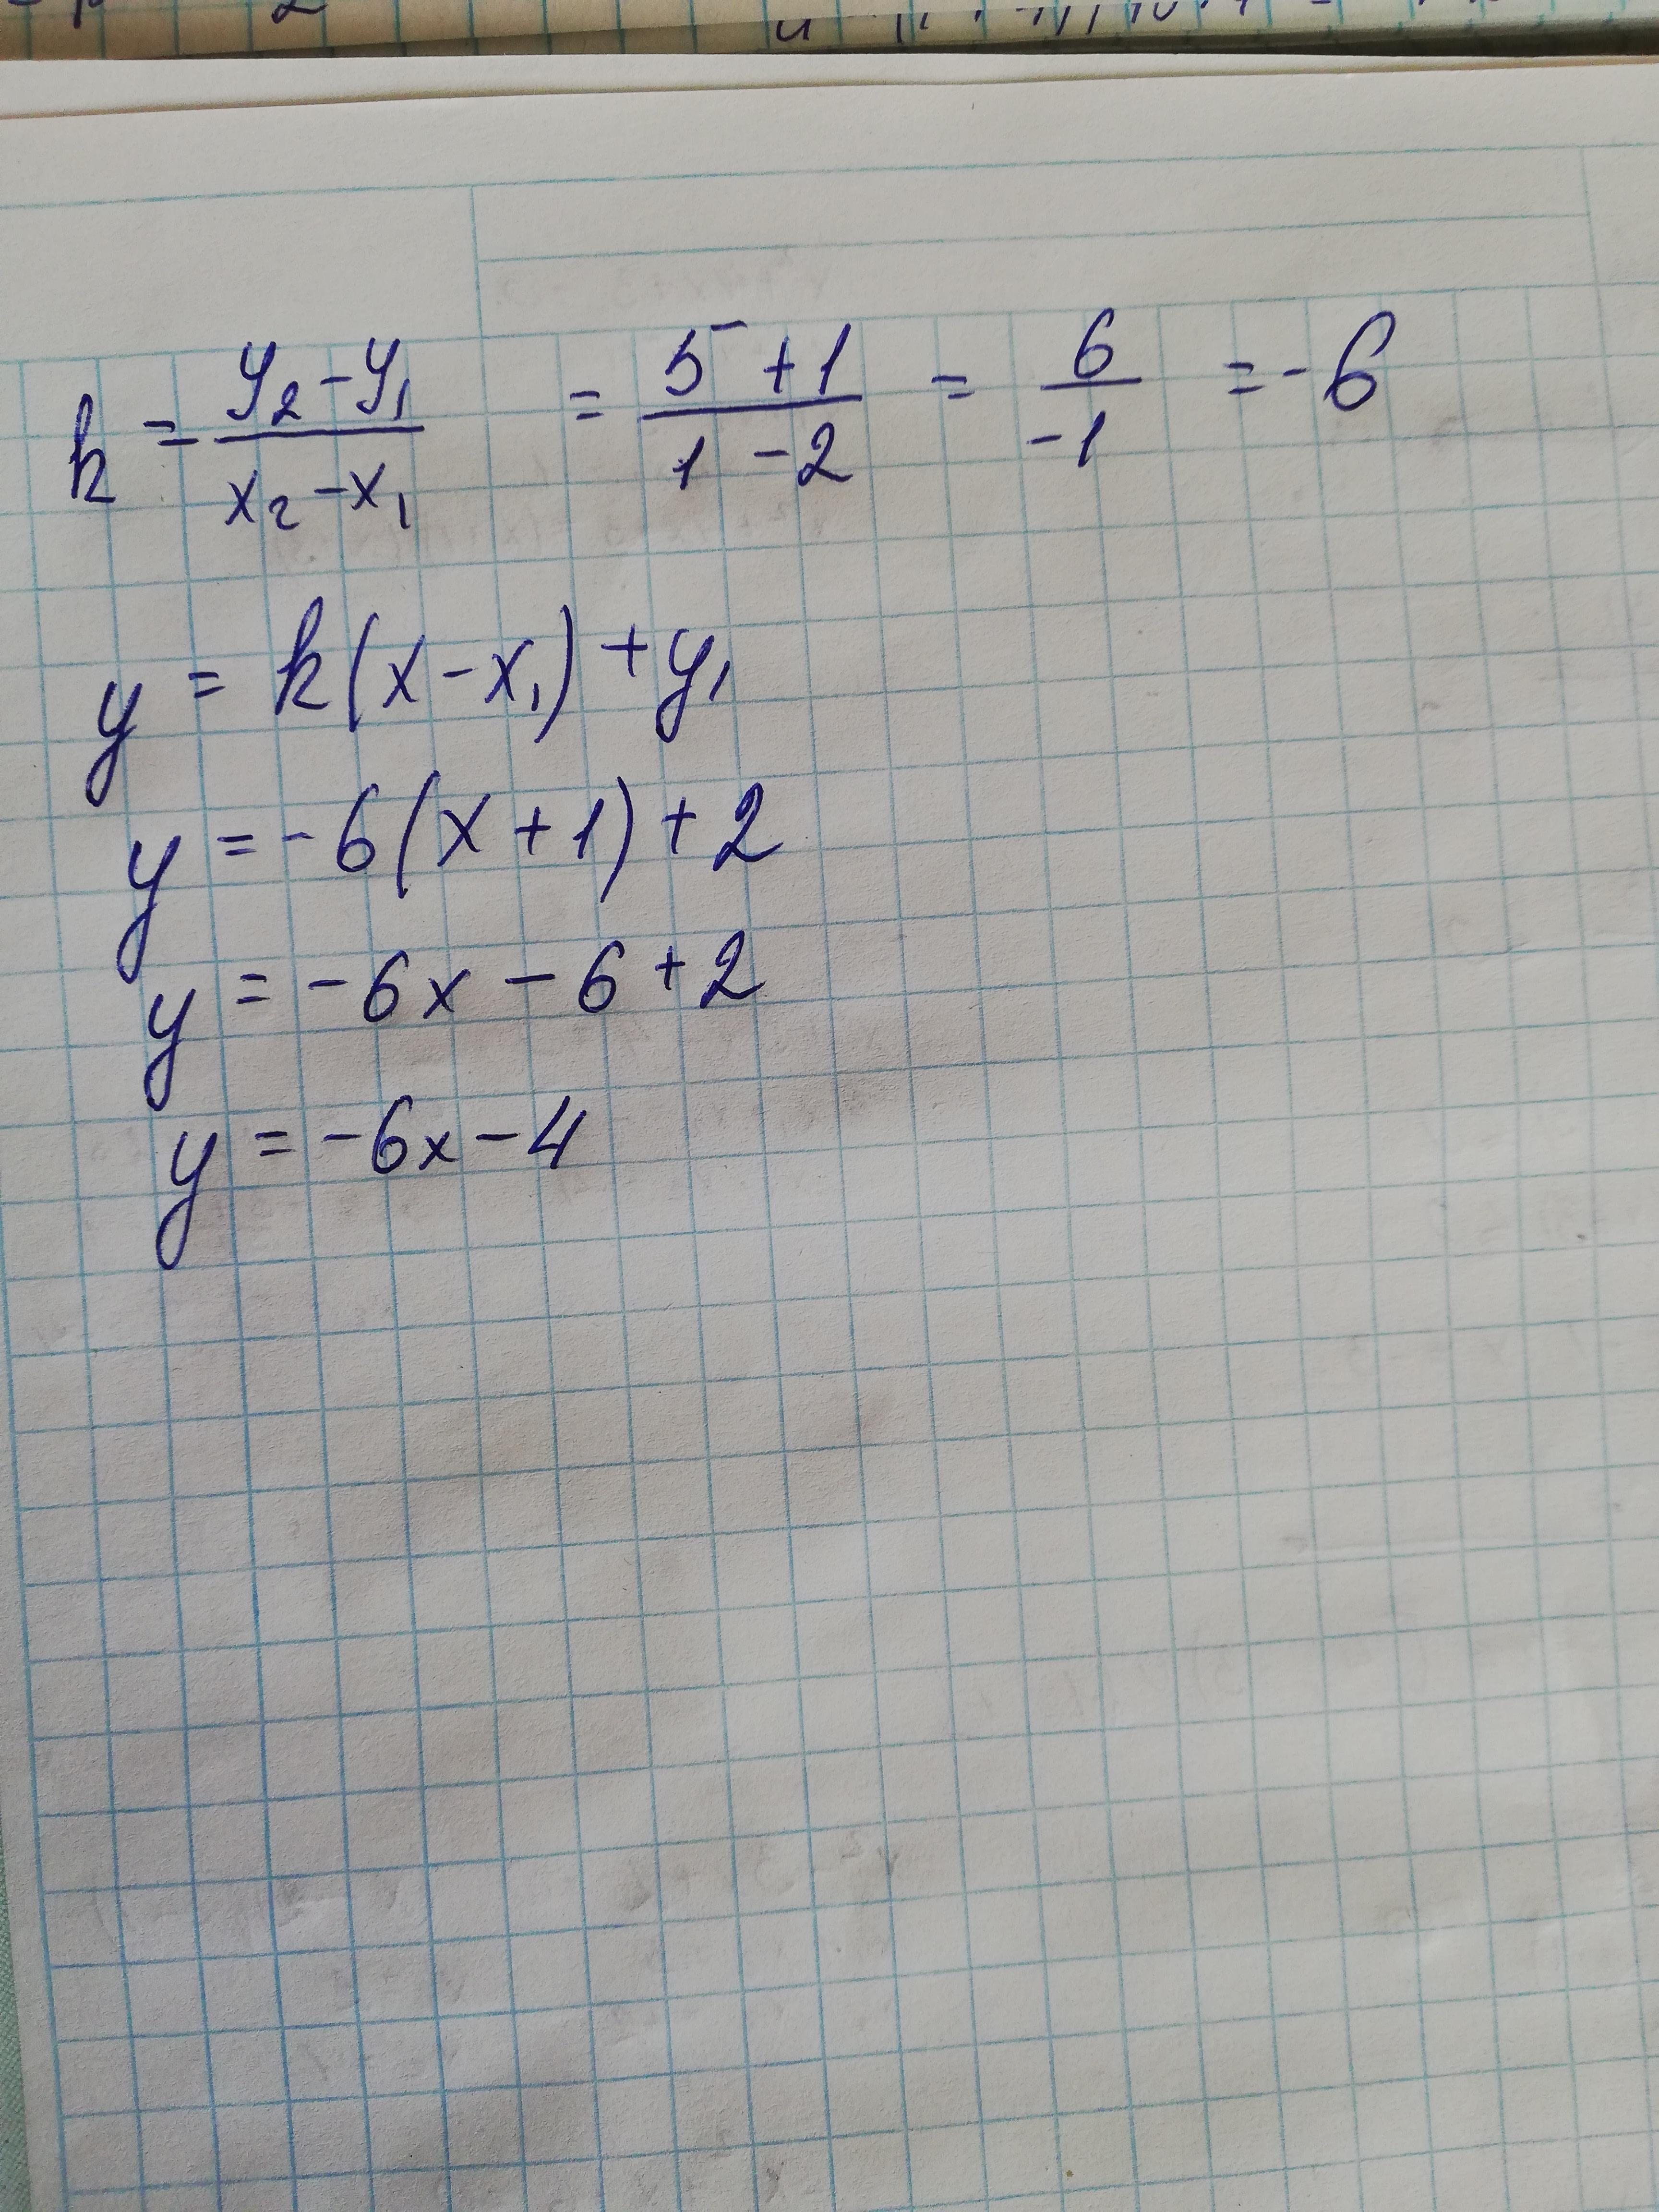 k = (y₂ - y₁)/(x₂ - x₁) = (5 + 1)/(1 - 2) = 6/(-1) = -6
y = k(x - x₁) + y₁
y = -6(x + 1) + 2
y = -6x - 6 + 2
y = -6x - 4